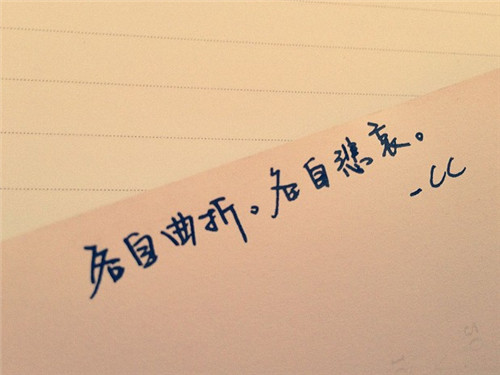 各自曲折。各自悲哀。
-CC